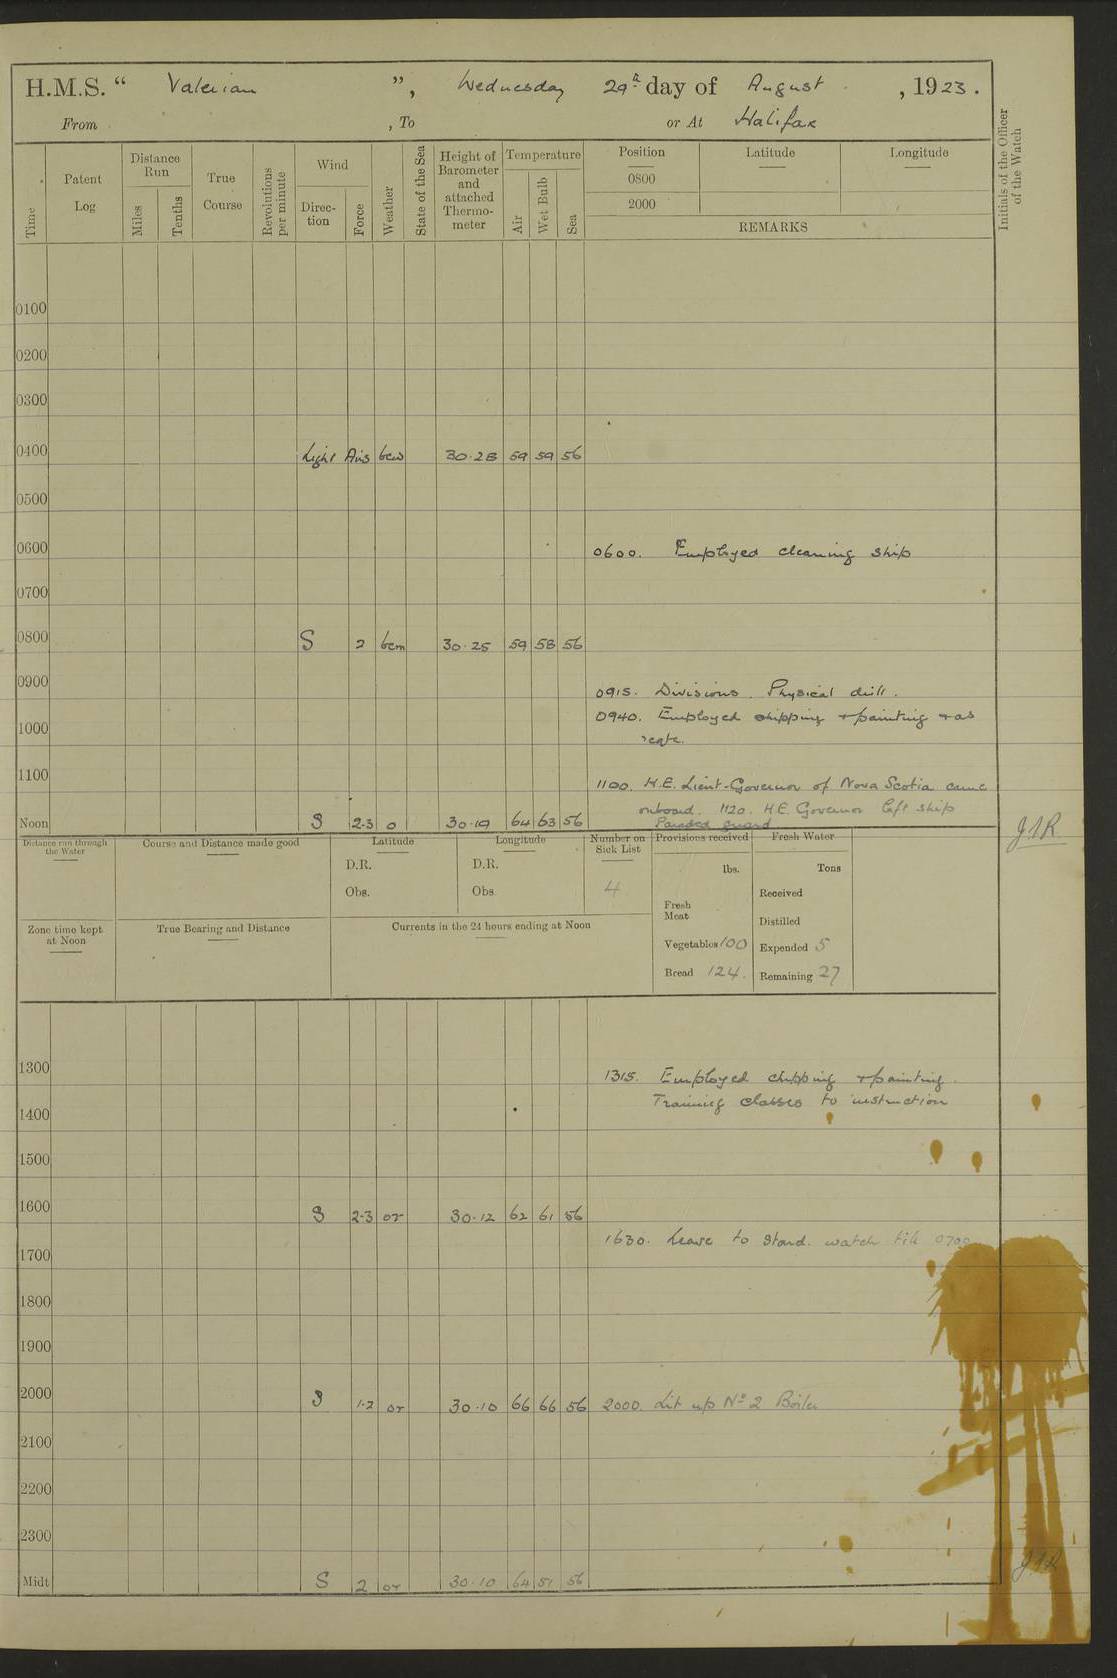 H.M.S. “ Valerian ”, Wednesday 29th day of August , 1923.
From , To or At Halifax
Time
Patent Log
Distance Run
Miles
Tenths
True Course
Revolutions per minute
Wind
Direction
Force
Weather
State of the Sea
Height of Barometer and attached Thermometer
Temperature
Air
Wet Bulb
Sea
Position Latitude Longitude
0800
2000
REMARKS
Initials of the Officer of the Watch
0100
0200
0300
0400 Light Airs bcw 30.28 59 59 56
0500
0600 0600. Employed cleaning ship
0700
0800 S 2 bcm 30.25 59 58 56
0900 0915. Divisions. Physical drill.
0940. Employed chipping + painting + as
1000 reqte.
1100 1100. H.E. Lieut-Governor of Nova Scotia came
onboard. 1120. H.E. Governor left ship
Paraded guard
Noon S 2-3 o 30.19 64 63 56
Distance run through the Water
Course and Distance made good
Latitude
D.R.
Obs.
Longitude
D.R.
Obs.
Number on Sick List
4
Provisions received
lbs.
Fresh Meat
Vegetables 100
Bread 124.
Fresh Water
Tons
Received
Distilled
Expended 5
Remaining 27
Zone time kept at Noon
True Bearing and Distance
Currents in the 24 hours ending at Noon
1300 1315. Employed chipping + painting.
Training classes to instruction
1400
1500
1600 S 2-3 or 30.12 62 61 56
1630. Leave to Starbd. watch till 0700
1700
1800
1900
2000 S 1-2 or 30.10 66 66 56 2000. Lit up No 2 Boiler
2100
2200
2300
Midt S 2 or 30.10 64 51 56